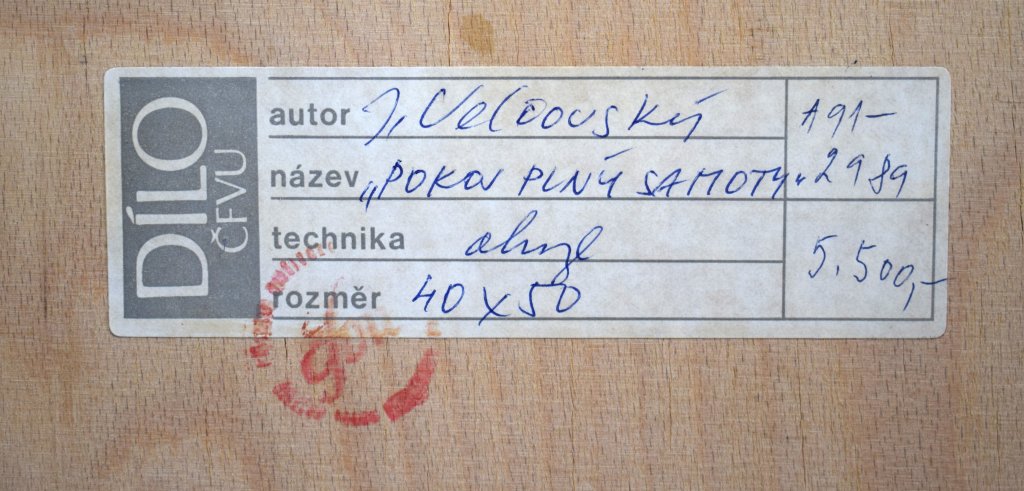 DÍLO
ČFVU
autor J. Velčovský
název „POKOJ PLNÝ SAMOTY"
technika olej
rozměr 40 x 50
A91-
2989
5.500,-